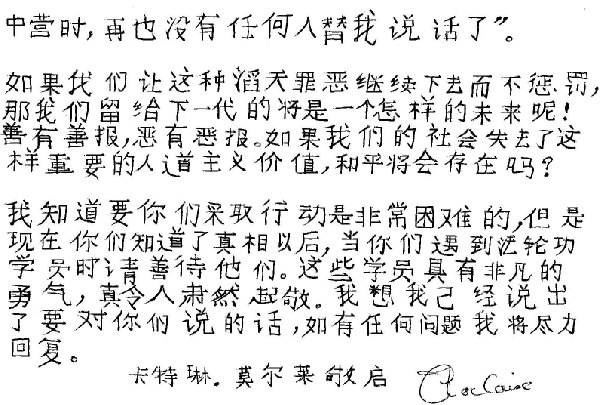 中营时,再也没有任何人替我说话了”。
如果我们让这种滔天罪恶继续下去而不惩罚,
那我们留给下一代的将是一个怎样的未来呢!
善有善报,恶有恶报。如果我们的社会失去了这
样重要的人道主义价值,和平将会存在吗?
我知道要你们采取行动是非常困难的,但是
现在你们知道了真相以后,当你们遇到法轮功
学员时请善待他们。这些学员具有非凡的
勇气,真令人肃然起敬。我想我已经说出
了要对你们说的话,如有任何问题我将尽力
回复。
卡特琳.莫尔莱敬启